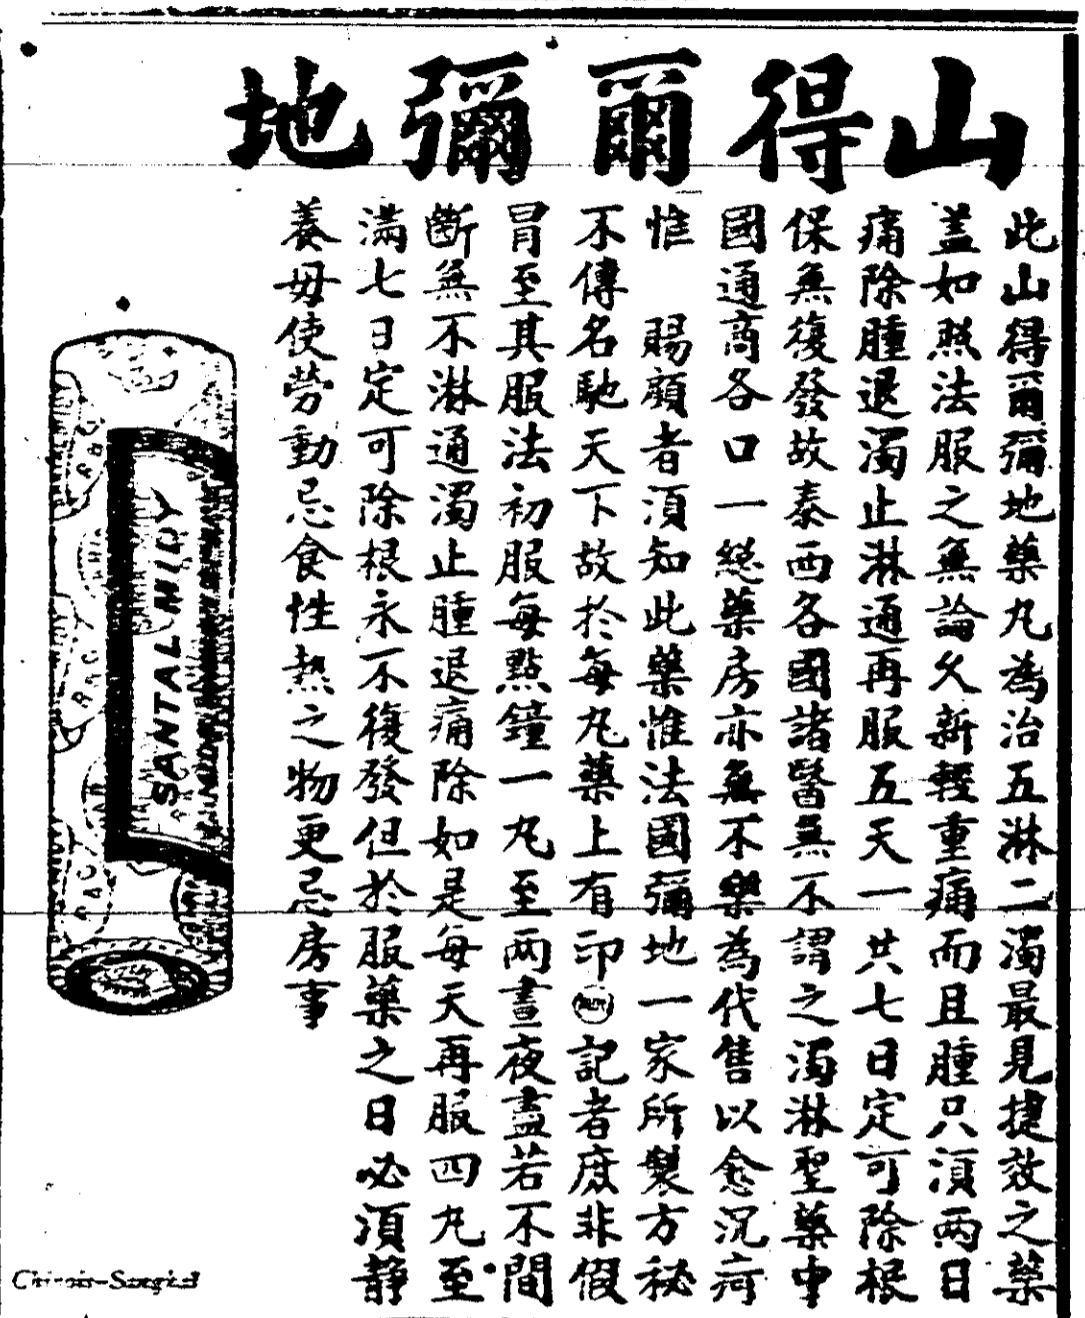 山得爾彌地
此山得爾彌地藥丸為治五淋二濁最見捷效之藥
蓋如照法服之無論久新輕重痛而且腫只須兩日
痛除腫退濁止淋通再服五天一共七日定可除根
保無復發故泰西各國諸醫無不謂之濁淋聖藥中
國通商各口一總藥房亦無不樂為代售以愈沉疴
惟 賜顧者須知此藥惟法國彌地一家所製方秘
不傳名馳天下故於每丸藥上有印MIDY記者庶非假
冒至其服法初服每點鐘一丸至两晝夜盡若不間
斷無不淋通濁止腫退痛除如是每天再服四丸至
滿七日定可除根永不復發但於服藥之日必須靜
養毋使勞動忌食性熱之物更忌房事
SANTAL MIDY